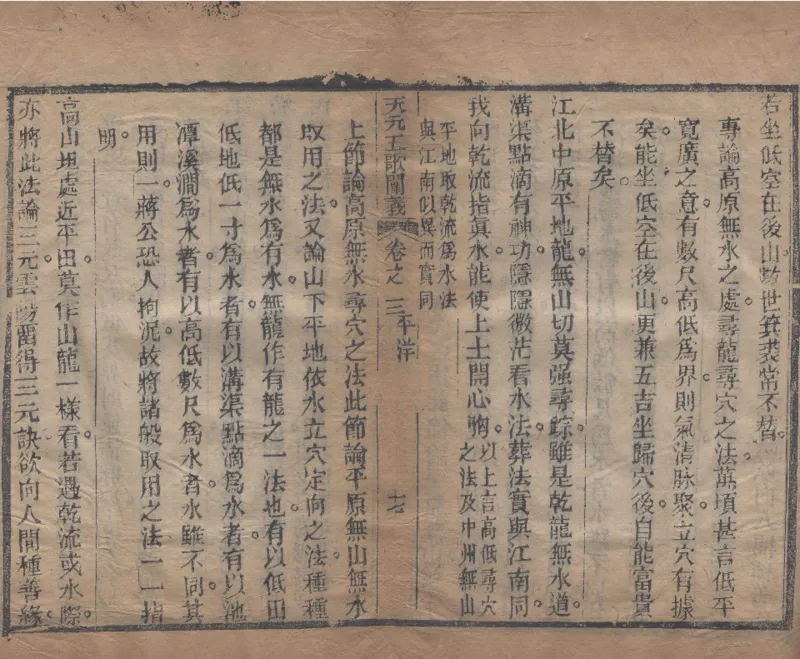 若坐低空在後山數世箕裘常不替
專論高原無水之處尋龍尋穴之法萬頃甚言低平
寬廣之意有數尺高低爲界則氣清脉聚立穴有據
矣能坐低空在後山更兼五吉坐歸穴後自能富貴
不替矣
江北中原平地龍無山切莫强尋踪雖是乾龍無水道
溝渠點滴有神功隱隱微茫看水法葬法實與江南同
我向乾流指眞水能使上士開心胸以上言高低尋穴之法及中州無山
平地取乾流爲水法與江南似異而實同
天元五歌闡義 卷之三 平洋 十七
上節論高原無水尋穴之法此節論平原無山無水
取用之法又論山下平地依水立穴定向之法種種
都是無水爲有水無龍作有龍之一法也有以低田
低地低一寸爲水者有以溝渠點滴爲水者有以池
潭溪澗爲水者有以高低數尺爲水者水雖不同其
用則一蔣公恐人拘泥故將諸般取用之法一一指
明
高山坦處近平田莫作山龍一樣看若遇乾流或水際
亦將此法論三元雲陽留得三元訣欲向人間種善緣